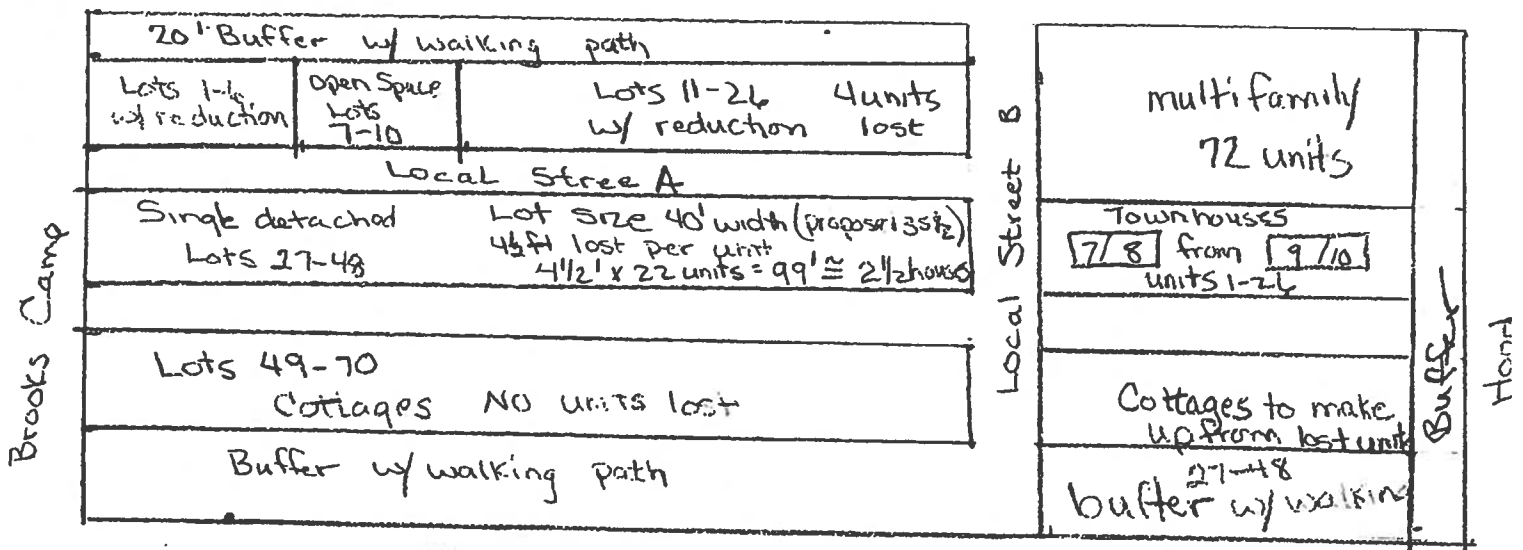 20' Buffer w/ walking path
Lots 1-6
w/ reduction
Open Space
Lots
7-10
Lots 11-26 4 units
w/ reduction lost
Local Stree A
Single detached
Lots 27-48
Lot Size 40' width (propose 135½)
4½ ft lost per unit
4½' x 22 units = 99' ≅ 2½ houses
Lots 49-70
Cottages NO units lost
Buffer w/ walking path
Brooks Camp
Local Street B
multifamily
72 units
Townhouses
7/8 from 9/10
units 1-26
Cottages to make
up from lost unit
27-48
buffer w/ walkin
Buffer